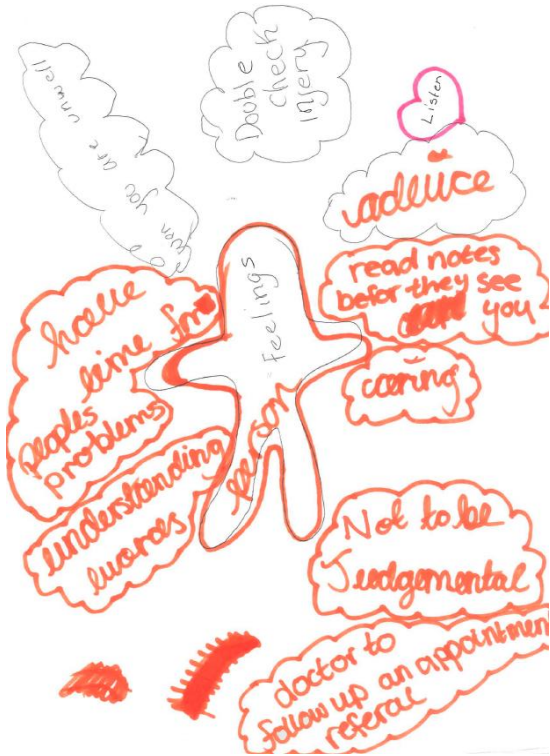 won you are unwell
Double
check
injery
Listen
advice
read notes
befor they see
you
caring
Feelings
person
have
time for
peoples
problems
understanding
words
Not to be
Judgemental
doctor to
follow up an appointment
referal